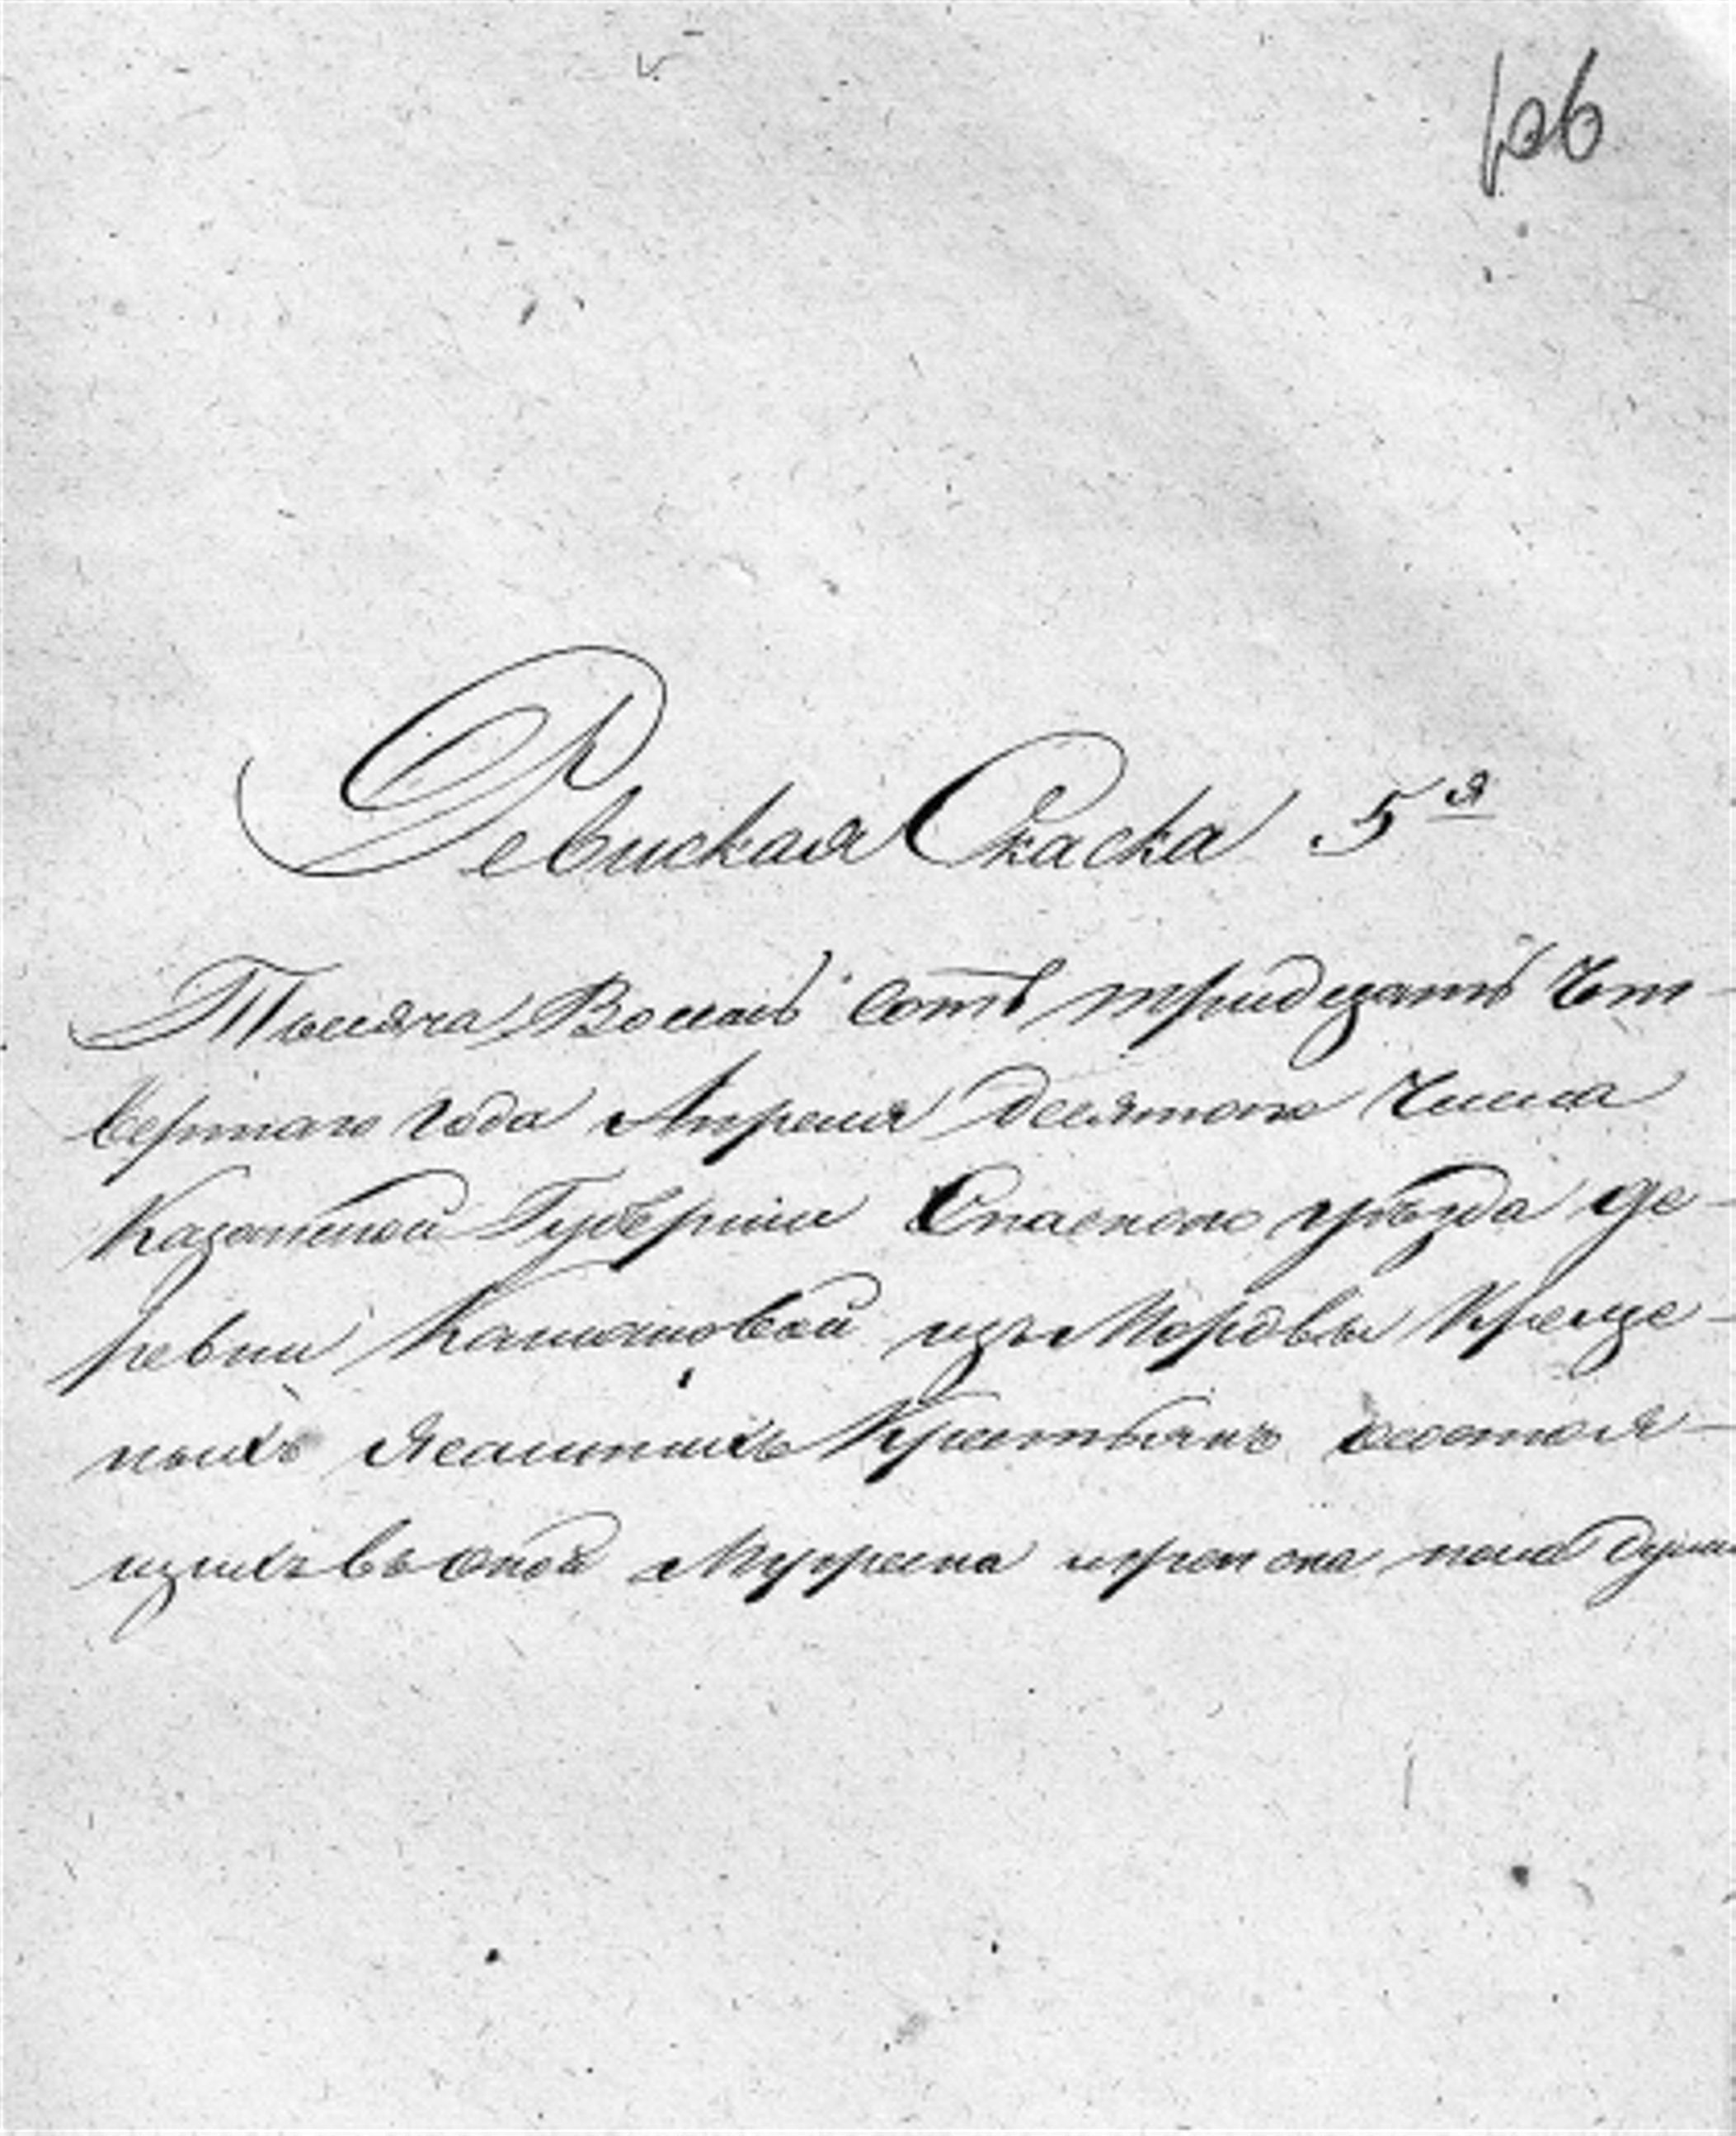 106
Ревиская Скаска 5я
Тысяча Восемь сотъ тридцать Чет-
вертаго Года Апреля десятого Числа
Казанской Губернiи Спаского уѣзда де-
ревни изъ Мордвы Креще-
ныхъ Ясашныхъ Крестьянъ состоя-
щихъ въ оной Мужеска и женска пола душ